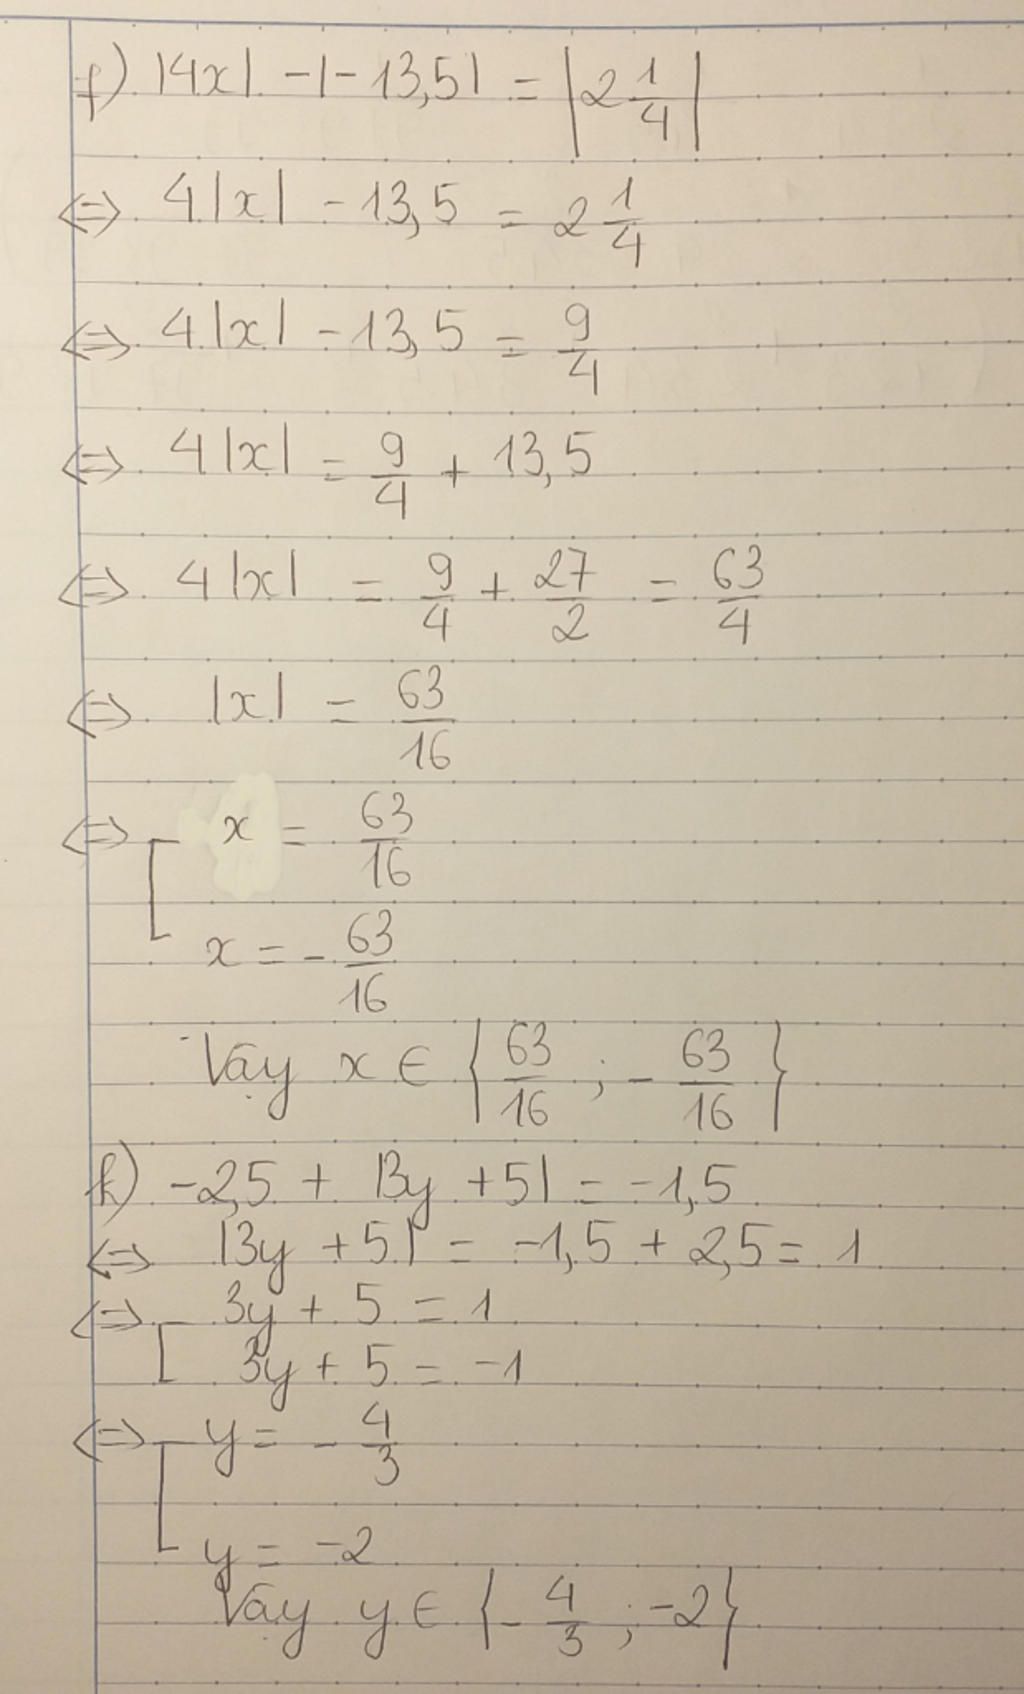 f) |4x| - |-13,5| = |2 1/4|
⇔ 4.|x| - 13,5 = 2 1/4
⇔ 4.|x| - 13,5 = 9/4
⇔ 4|x| = 9/4 + 13,5
⇔ 4|x| = 9/4 + 27/2 = 63/4
⇔ |x| = 63/16
⇔ [ x = 63/16
x = - 63/16
Vậy x ∈ {63/16 ; - 63/16}
h) -2,5 + |3y + 5| = -1,5
⇔ |3y + 5| = -1,5 + 2,5 = 1
⇔ [ 3y + 5 = 1
3y + 5 = -1
⇔ [ y = - 4/3
y = -2
Vậy y ∈ {- 4/3 ; -2}